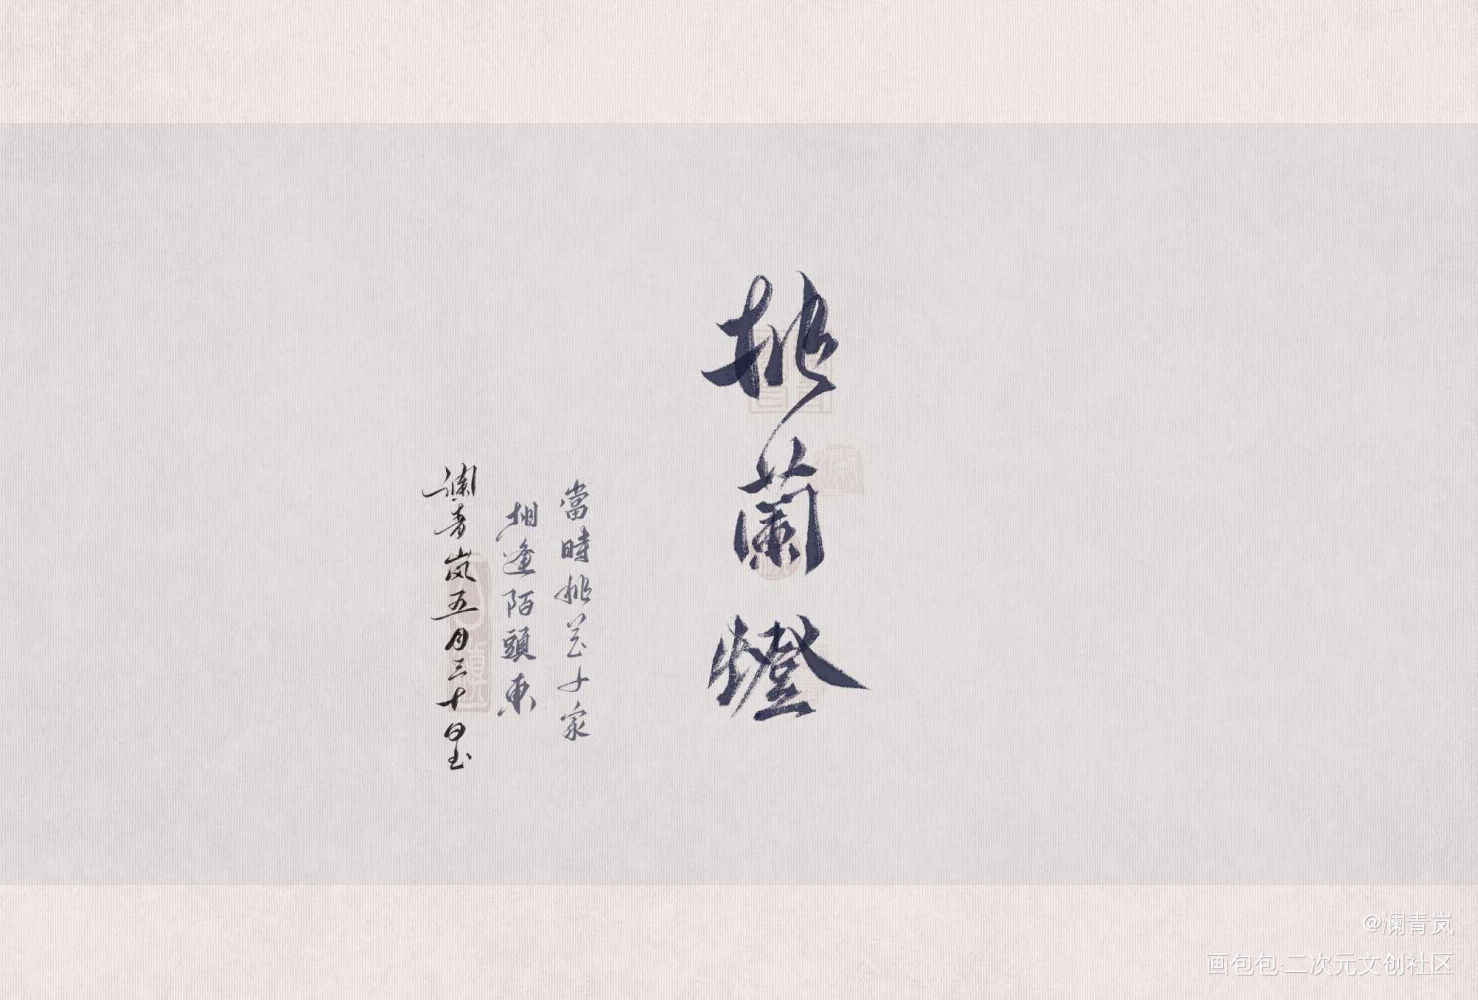 挑蘭燈
當時挑花千家
相逢陌頭東
澜青岚五月三十日书
@澜青岚
画包包·二次元文创社区